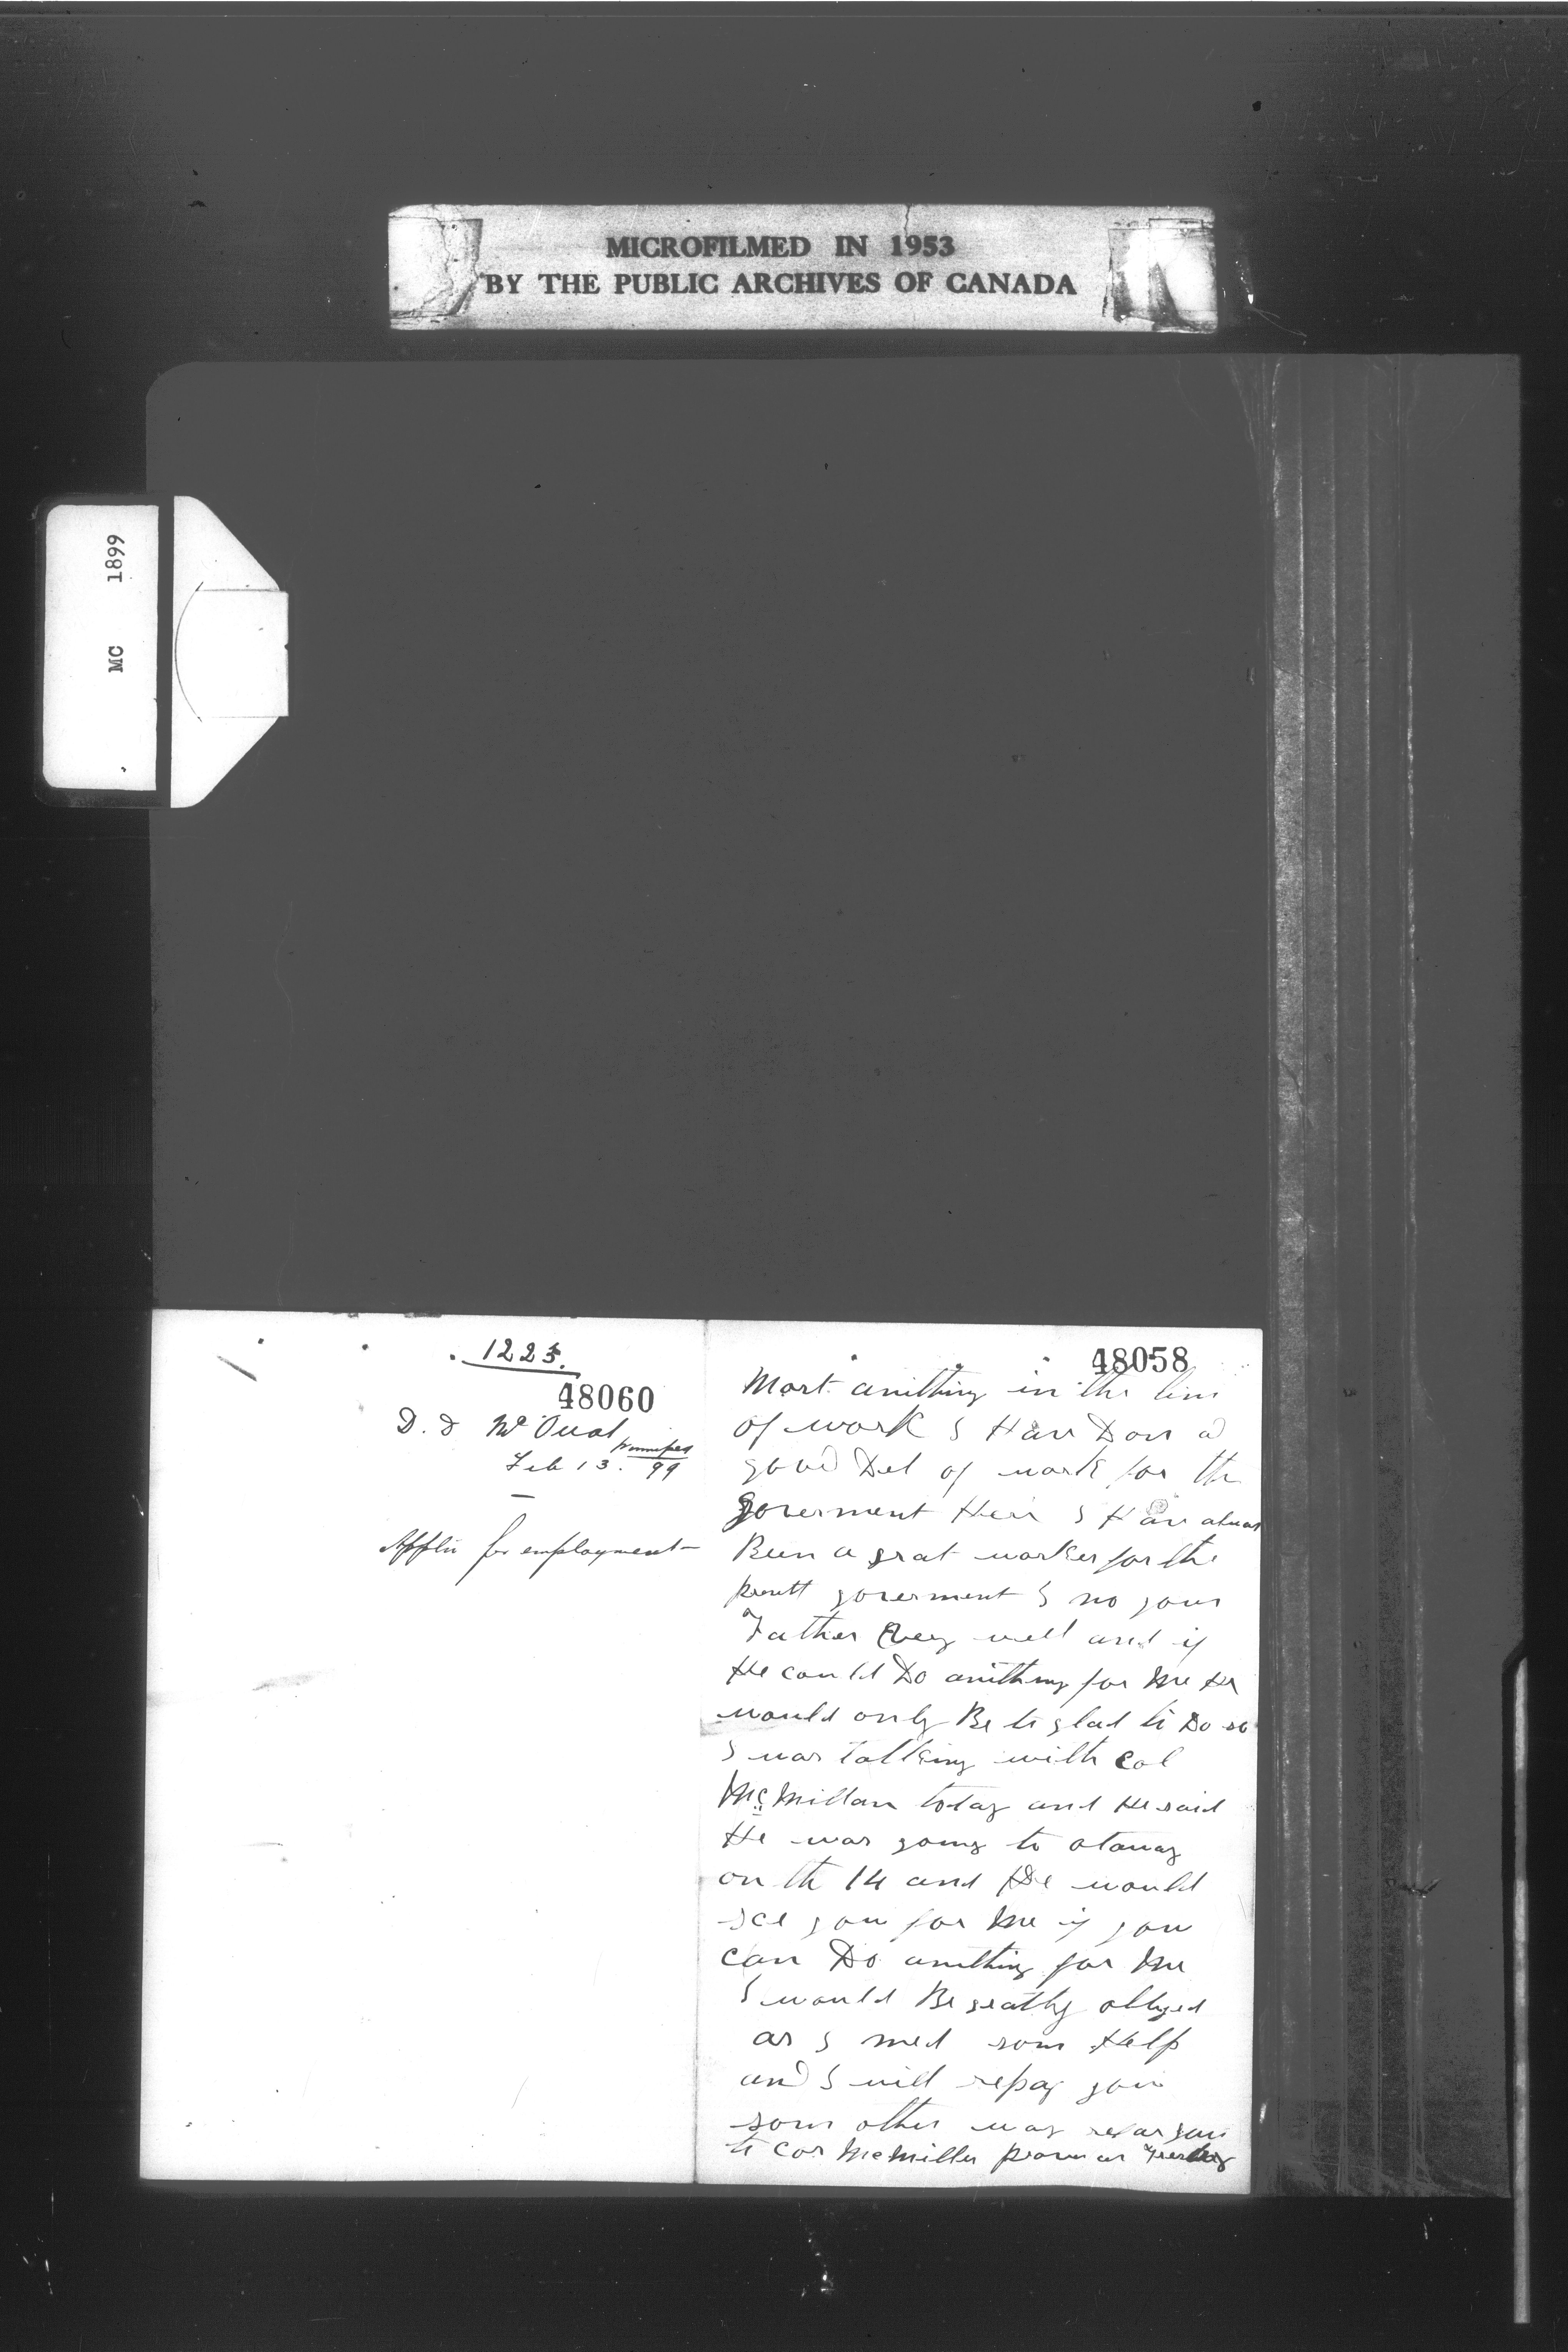 MICROFILMED IN 1953
BY THE PUBLIC ARCHIVES OF CANADA
MC 1899
1225.
48060
D. D Mc
Winnipeg
Feb 13. 99
for employment
48058
Most anithing in the line
of work I Hav Don a
good Del of work for the
goverment Heir I Hav
Been a grat worker for the
goverment I no your
Father very well and if
He could Do anithing for Me He
would only Be to glad to Do so
I was talking with Col
McMillan today and He said
He was going to
on th 14 and He would
see you for Me if you
can Do anithing for Me
I would Be greatly obliged
as I need som Help
and I will repay you
som other way
to McMillen